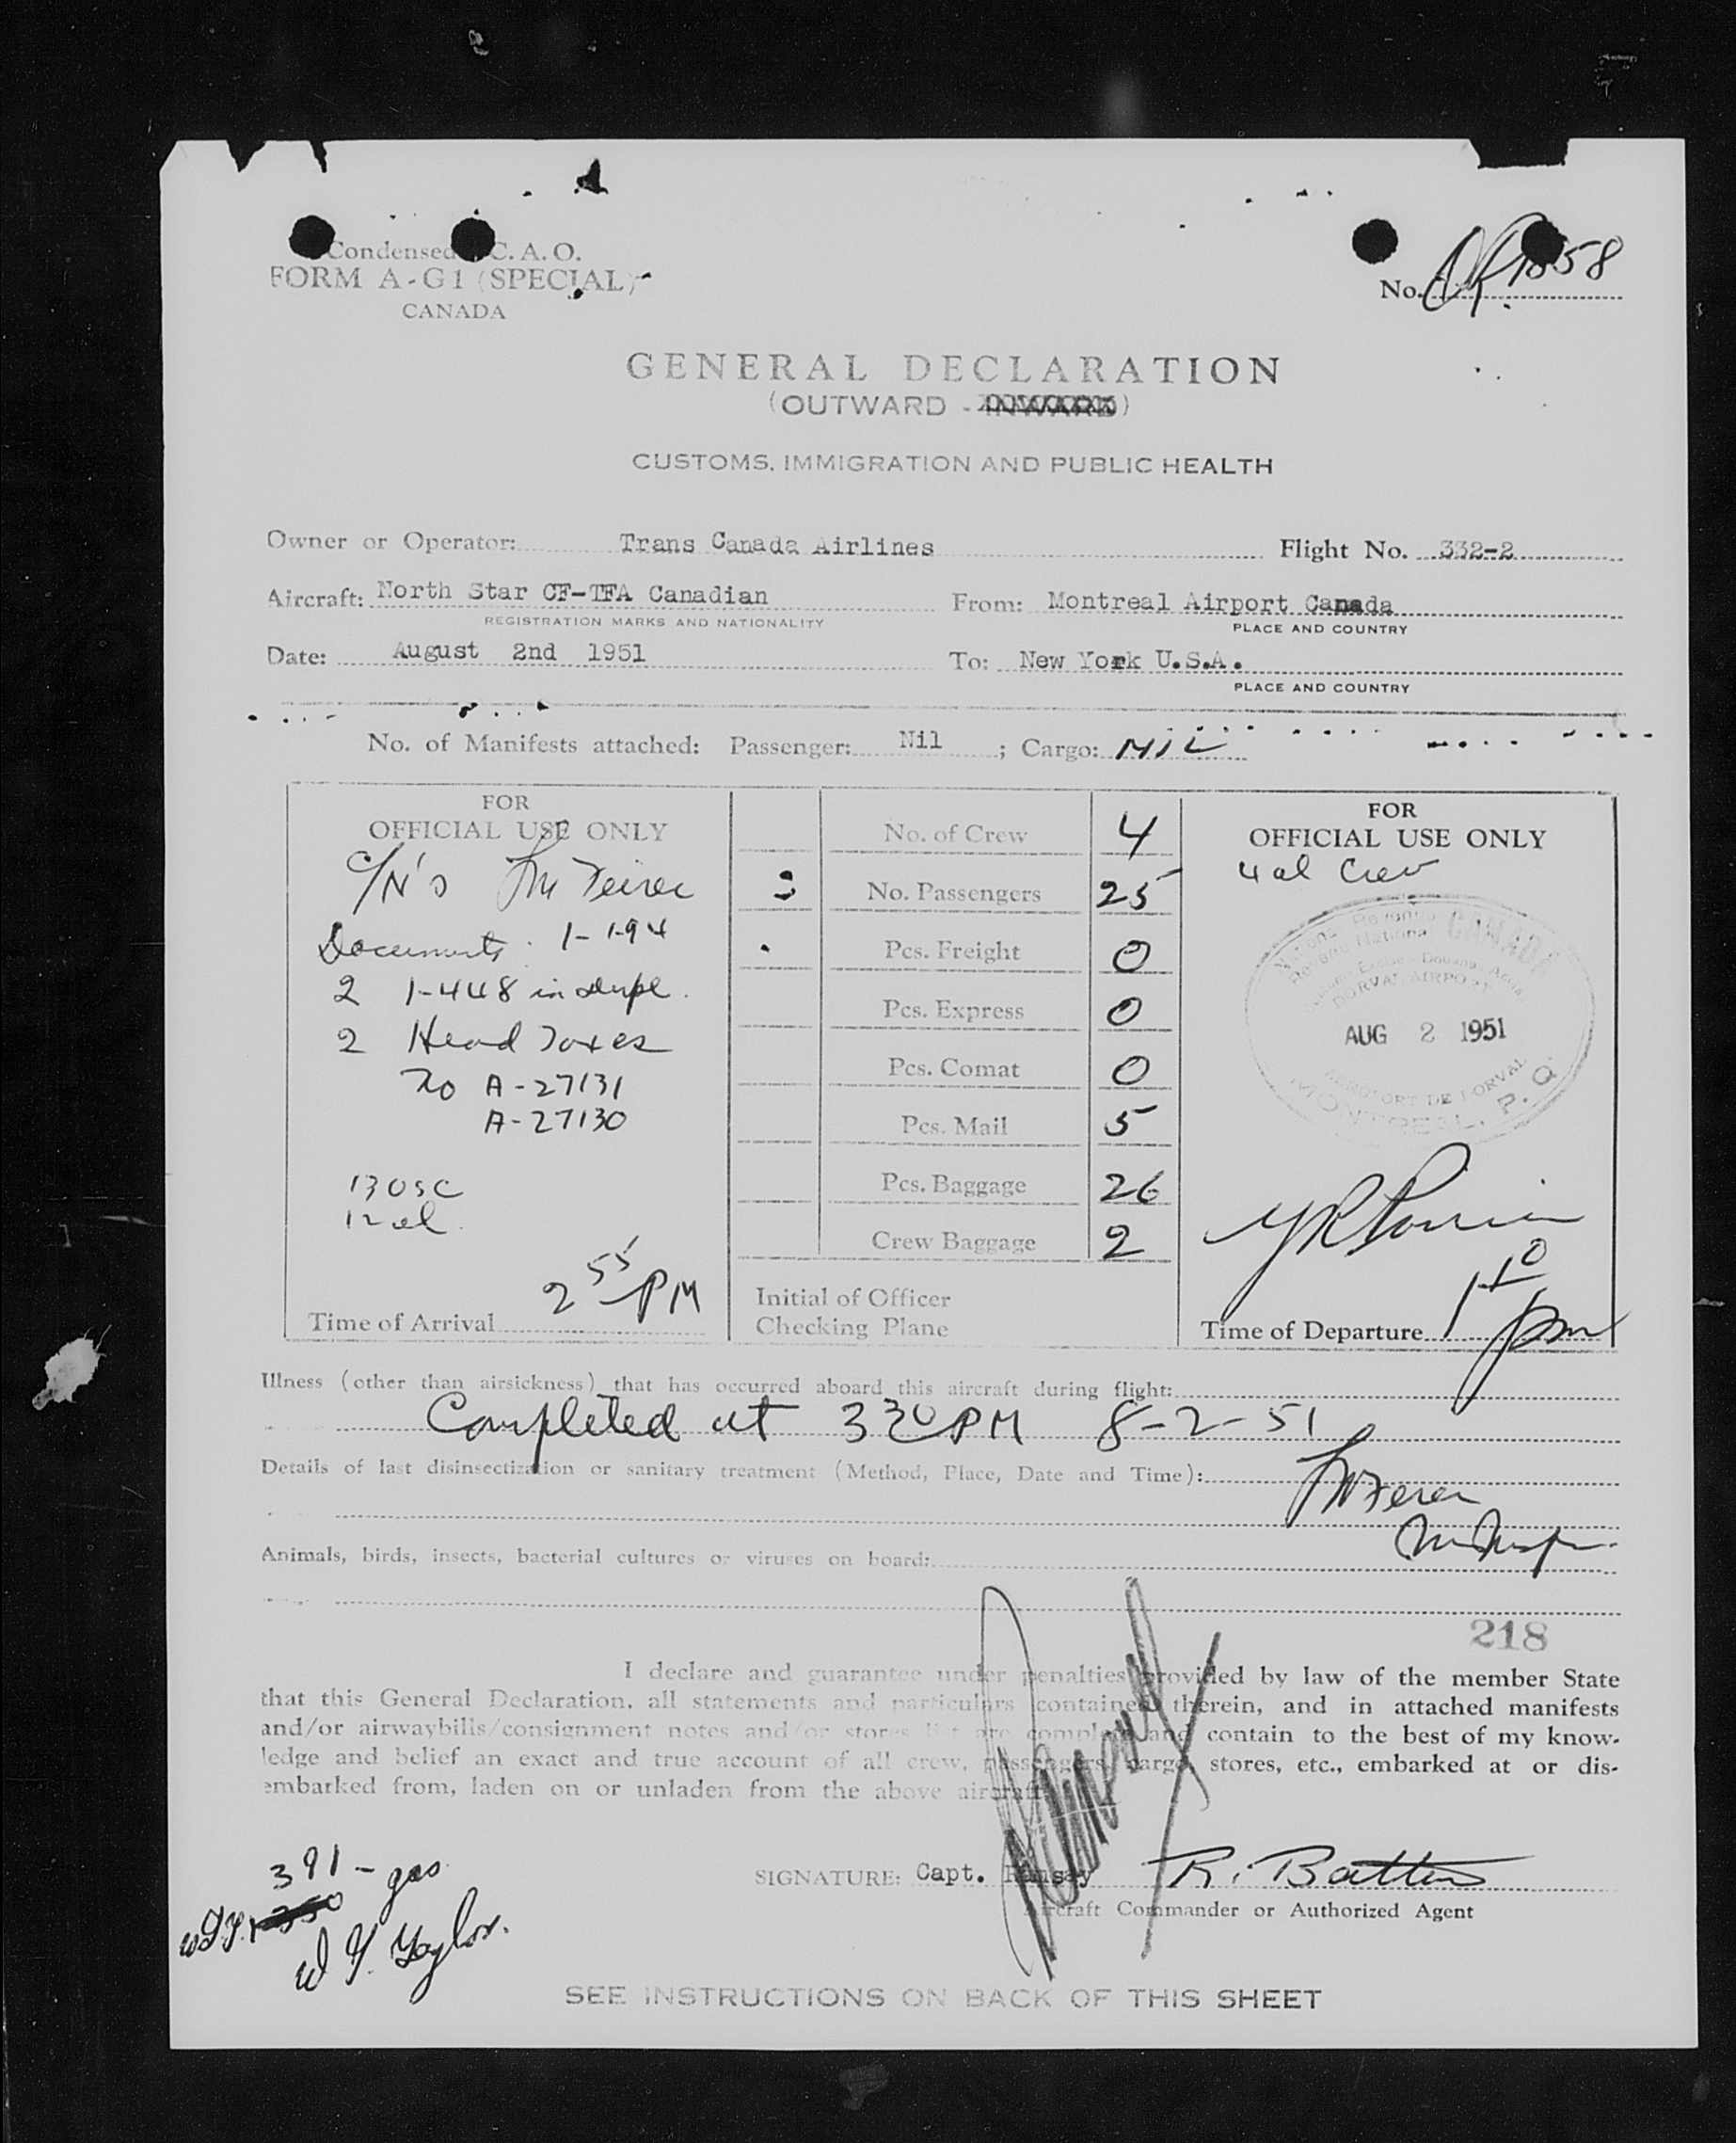 Condensed C. A. O.
FORM A-G1 (SPECIAL)
CANADA
No. 1858
GENERAL DECLARATION
(OUTWARD - INWARD)
CUSTOMS, IMMIGRATION AND PUBLIC HEALTH
Owner or Operator: Trans Canada Airlines Flight No. 332-2
Aircraft: North Star CF-TFA Canadian From: Montreal Airport Canada
REGISTRATION MARKS AND NATIONALITY PLACE AND COUNTRY
Date: August 2nd 1951 To: New York U.S.A.
PLACE AND COUNTRY
No. of Manifests attached: Passenger: Nil ; Cargo: NIL
FOR
OFFICIAL USE ONLY
C/N's
Documents 1-194
2 1-448 in dupl.
2 Head Taxes
No A-27131
A-27130
13 USC
12 al
2 55 PM
Time of Arrival
No. of Crew 4
No. Passengers 25
Pcs. Freight 0
Pcs. Express 0
Pcs. Comat 0
Pcs. Mail 5
Pcs. Baggage 26
Crew Baggage 2
Initial of Officer
Checking Plane
FOR
OFFICIAL USE ONLY
4 al Crew
CANADA
DORVAL AIRPORT
AUG 2 1951
AEROPORT DE DORVAL
MONTREAL, P. Q.
Time of Departure 1 10 pm
Illness (other than airsickness) that has occurred aboard this aircraft during flight:
Completed at 3 30 PM 8-2-51
Details of last disinsectization or sanitary treatment (Method, Place, Date and Time):
Animals, birds, insects, bacterial cultures or viruses on board:
218
I declare and guarantee under penalties provided by law of the member State
that this General Declaration, all statements and particulars contained therein, and in attached manifests
and/or airwaybills/consignment notes and/or stores list are complete and contain to the best of my know-
ledge and belief an exact and true account of all crew, passengers, cargo, stores, etc., embarked at or dis-
embarked from, laden on or unladen from the above aircraft.
391 - gas
W.Y. 350
W Y. Taylor.
SIGNATURE: Capt. Ramsay R. Batten
Aircraft Commander or Authorized Agent
SEE INSTRUCTIONS ON BACK OF THIS SHEET